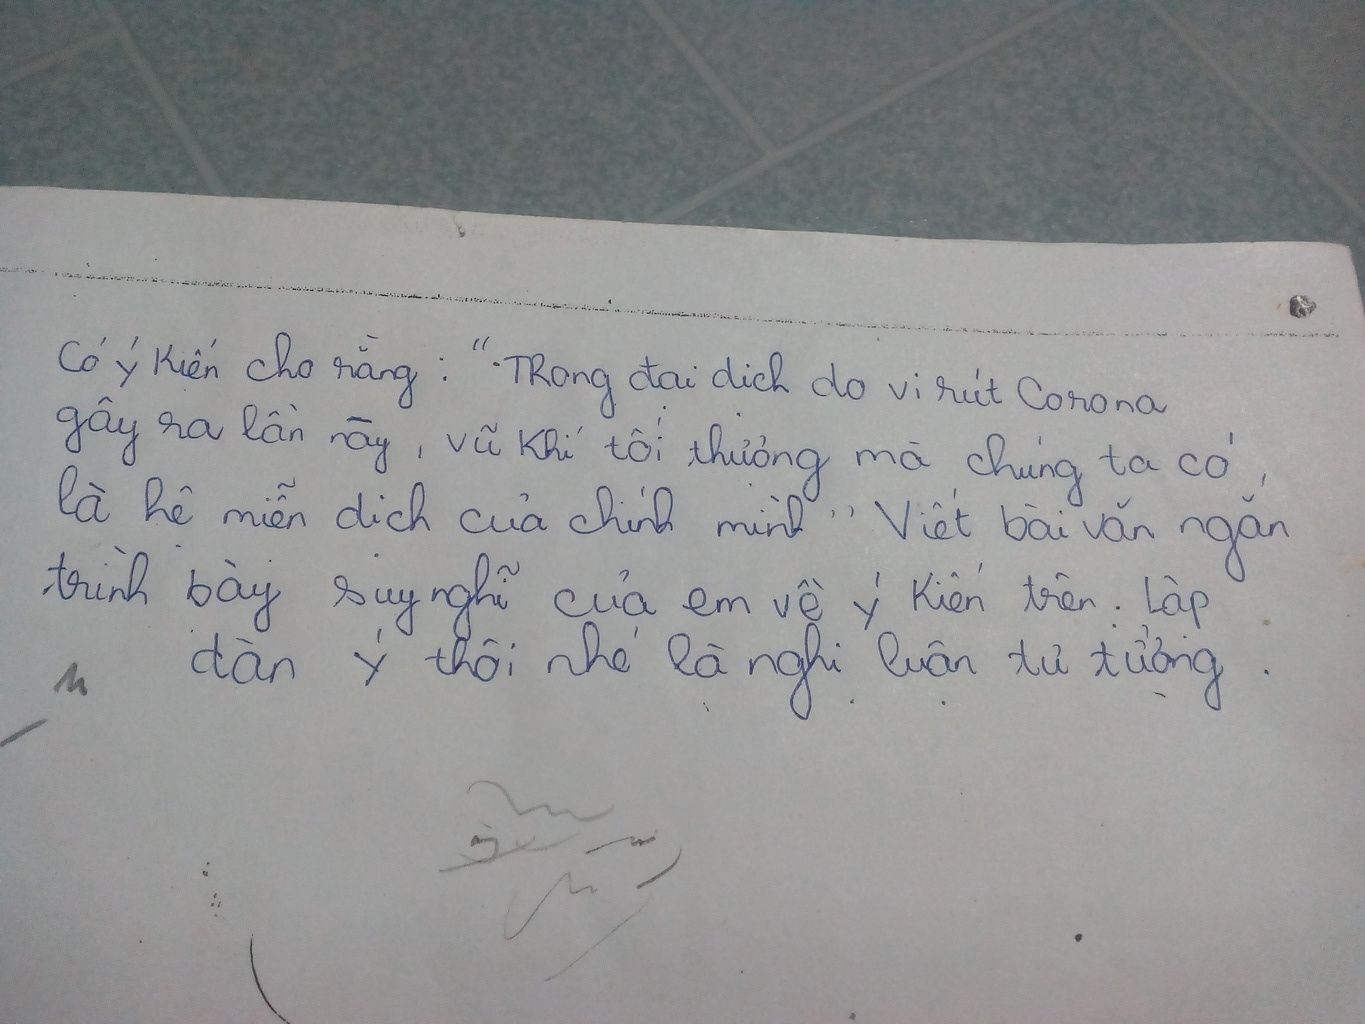 Có ý kiến cho rằng: "TRong đại dịch do vi rút Corona
gây ra lần này, vũ khí tối thượng mà chúng ta có,
là hệ miễn dịch của chính mình" Viết bài văn ngắn
trình bày suy nghĩ của em về ý kiến trên. Lập
dàn ý thôi nhé là nghị luận tư tưởng.